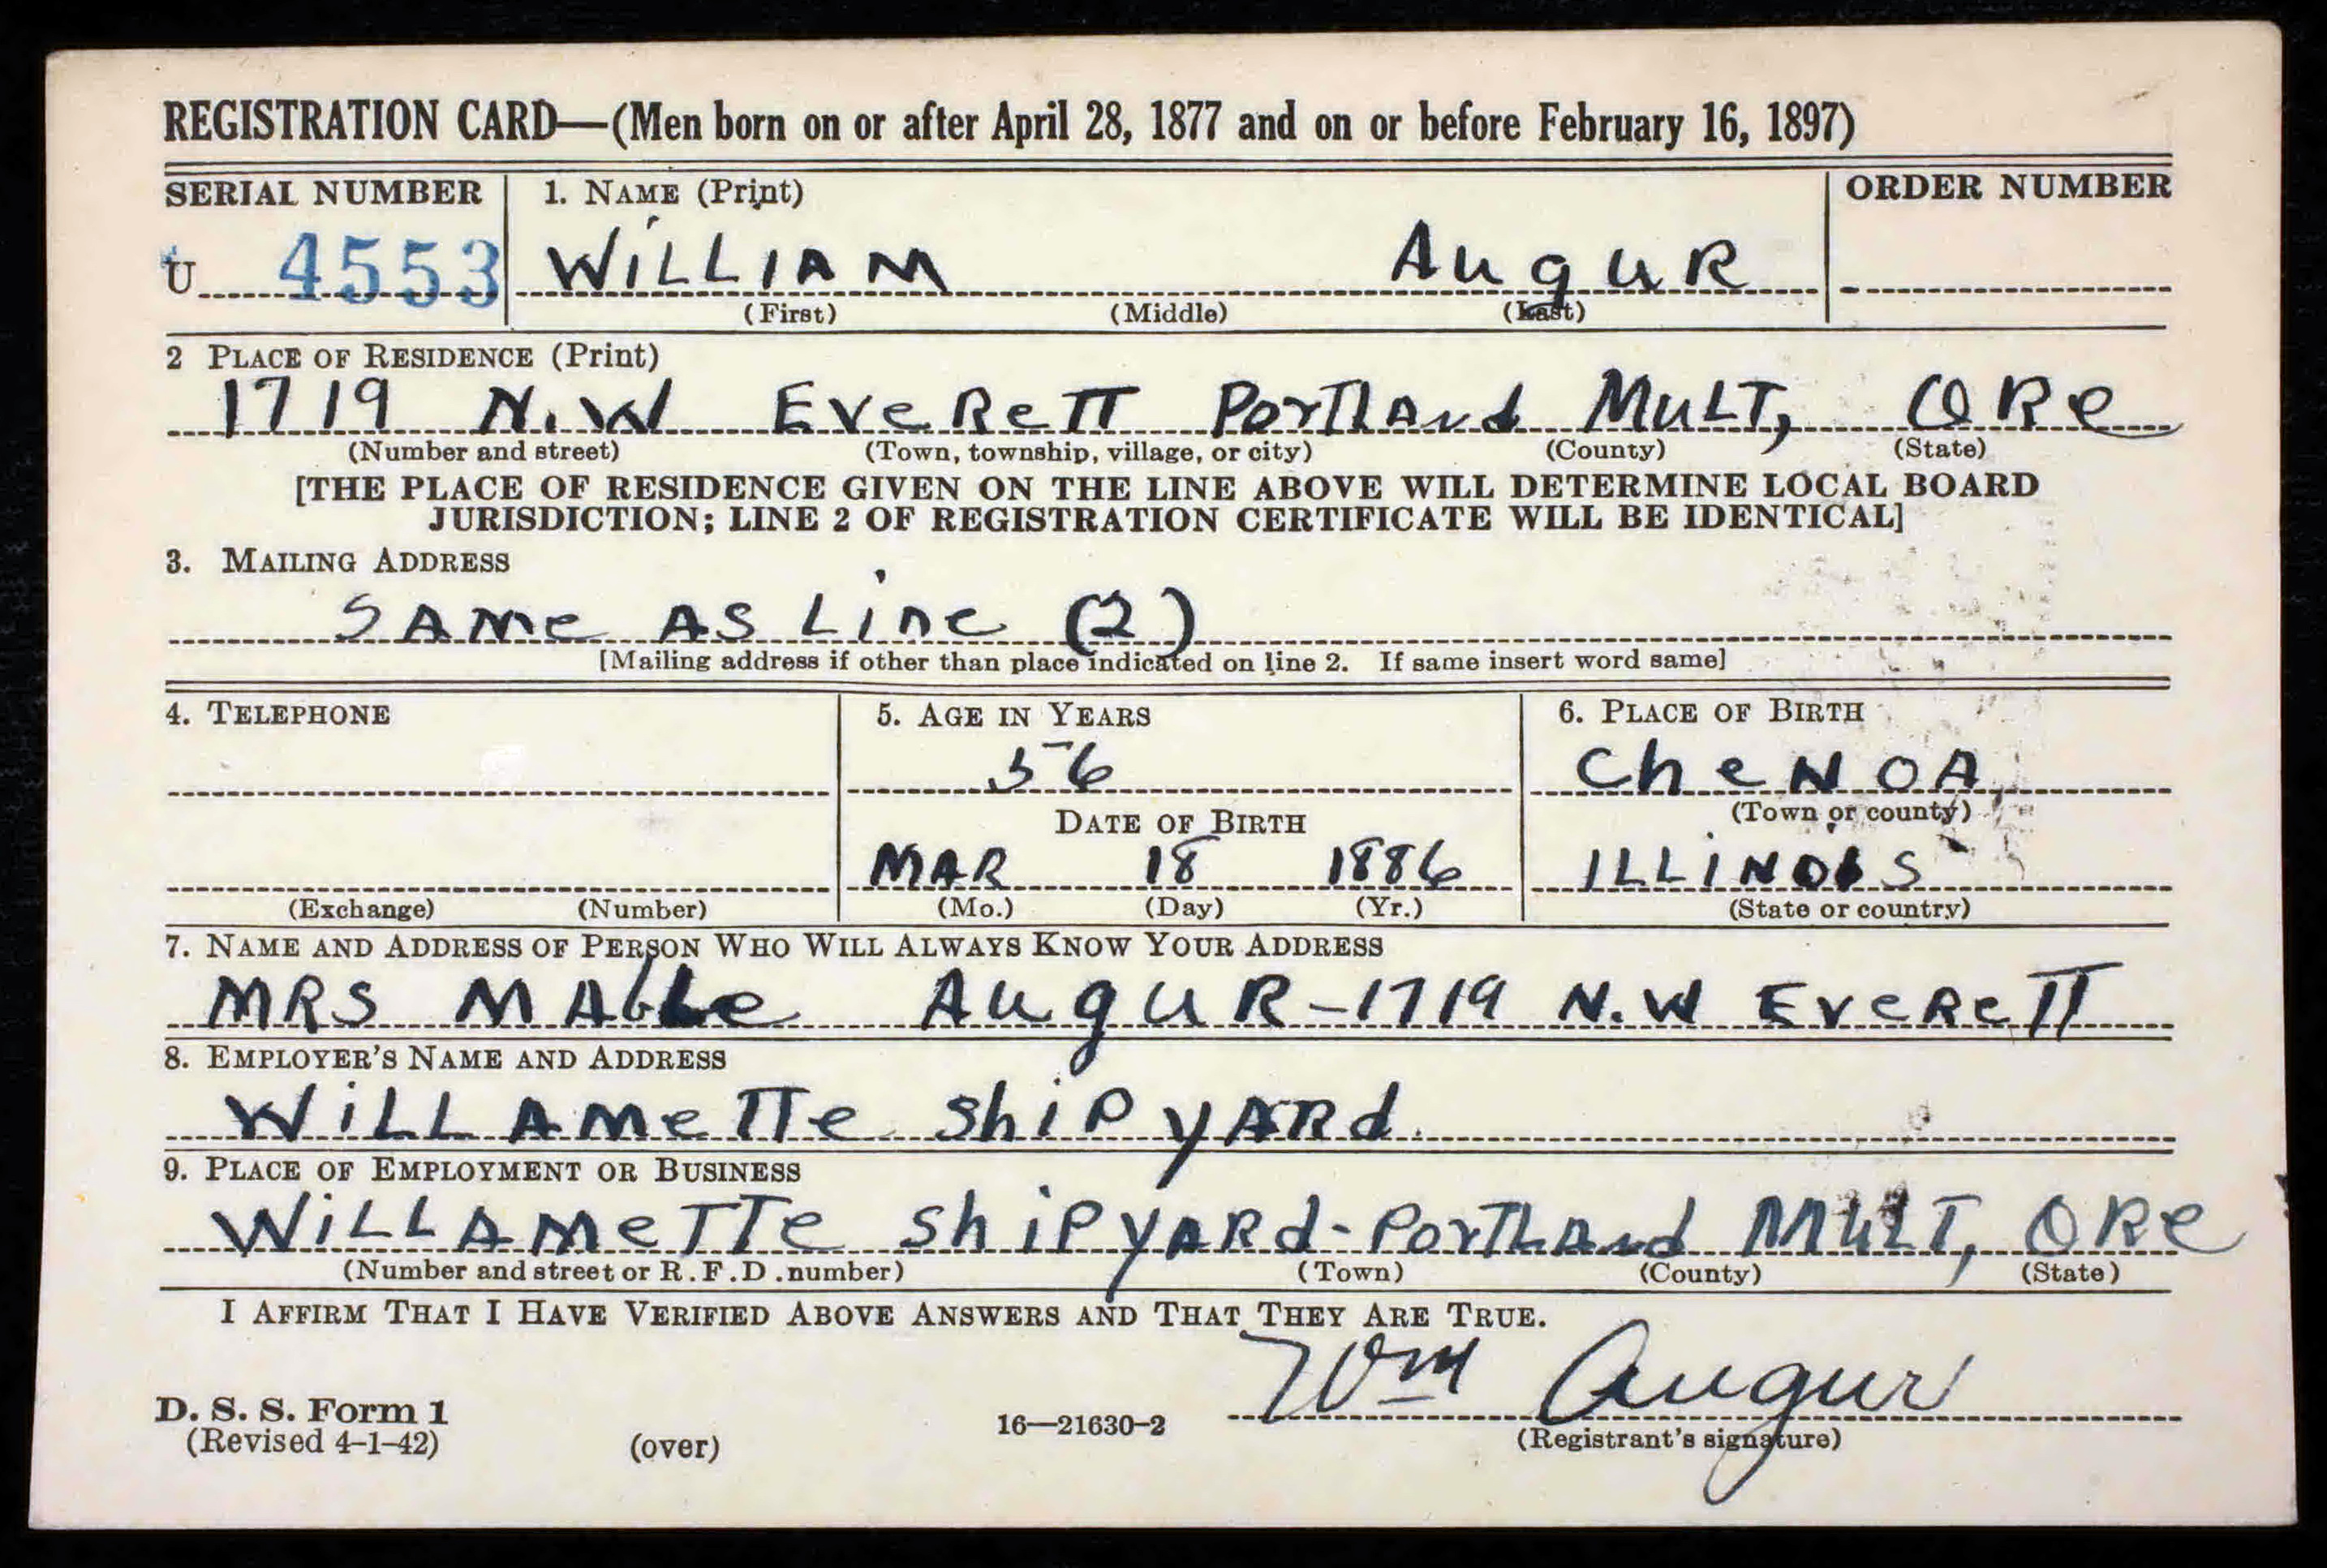 REGISTRATION CARD—(Men born on or after April 28, 1877 and on or before February 16, 1897)
SERIAL NUMBER 1. NAME (Print) ORDER NUMBER
U 4553 WiLLIAM AuguR
(First) (Middle) (Last)
2 PLACE OF RESIDENCE (Print)
1719 N.W EVeReTT PorTlAnd MuLT, ORe
(Number and street) (Town, township, village, or city) (County) (State)
[THE PLACE OF RESIDENCE GIVEN ON THE LINE ABOVE WILL DETERMINE LOCAL BOARD
JURISDICTION; LINE 2 OF REGISTRATION CERTIFICATE WILL BE IDENTICAL]
3. MAILING ADDRESS
SAMe AS Line (2)
[Mailing address if other than place indicated on line 2. If same insert word same]
4. TELEPHONE 5. AGE IN YEARS 6. PLACE OF BIRTH
56 CheNOA,
DATE OF BIRTH (Town or county)
MAR 18 1886 ILLiNOiS
(Exchange) (Number) (Mo.) (Day) (Yr.) (State or country)
7. NAME AND ADDRESS OF PERSON WHO WILL ALWAYS KNOW YOUR ADDRESS
MRS MAbLe AuguR-1719 N.W EVeReTT
8. EMPLOYER'S NAME AND ADDRESS
WiLLAMeTTe ShiPyARd.
9. PLACE OF EMPLOYMENT OR BUSINESS
WiLLAMeTTe ShiPyARd-PorTLAnd MuLT, ORe
(Number and street or R.F.D. number) (Town) (County) (State)
I AFFIRM THAT I HAVE VERIFIED ABOVE ANSWERS AND THAT THEY ARE TRUE.
Wm Augur
D. S. S. Form 1
(Revised 4-1-42) (over) 16—21630-2 (Registrant's signature)